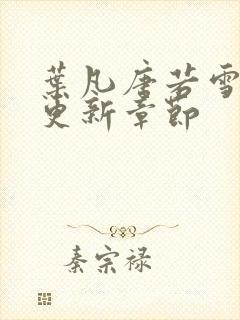 葉凡唐若雪
更新章節
秦宗禄